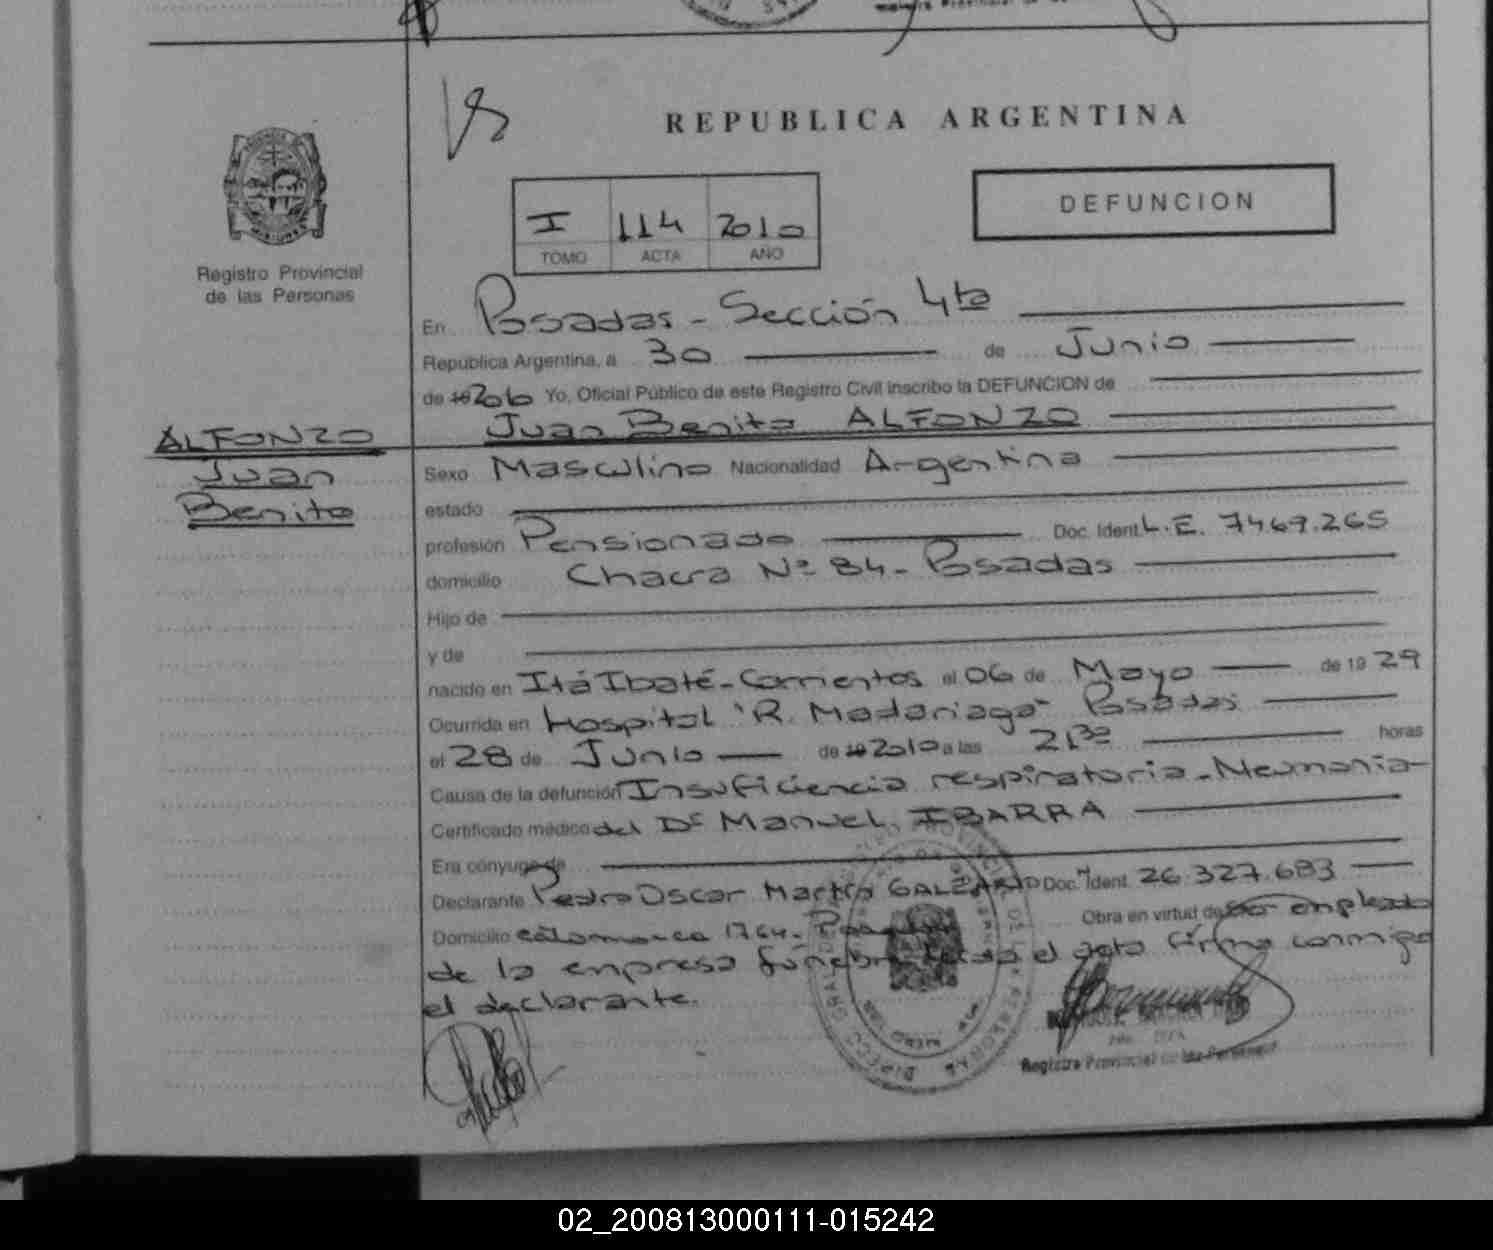 REPUBLICA ARGENTINA
DEFUNCION
I 114 2010
TOMO ACTA AÑO
Registro Provincial
de las Personas
En Posadas - Sección 4ta
República Argentina, a 30 de Junio
de 19 2010 Yo, Oficial Público de este Registro Civil inscribo la DEFUNCION de
Juan Benito ALFONZO
ALFONZO
Juan
Benito
Sexo Masculino Nacionalidad Argentina
estado
profesión Pensionado Doc. Ident. L.E. 7469.265
domicilio Chacra Nº 84 - Posadas
Hijo de
y de
nacido en Itá Ibaté - Corrientes el 06 de Mayo de 19 29
Ocurrida en Hospital "R. Madariaga" Posadas
el 28 de Junio de 19 2010 a las 21³⁰ horas
Causa de la defunción Insuficiencia respiratoria - Neumonia
Certificado médico del Dr Manuel IBARRA
Era cónyuge de
Declarante Pedro Oscar Martin Doc. Ident. 26.327.683
Domicilio Catamarca 1764 - Obra en virtud de ser empleado
de la empresa fúnebre el acta firma conmigo
el declarante.
Registro Provincial de las Personas
02_200813000111-015242